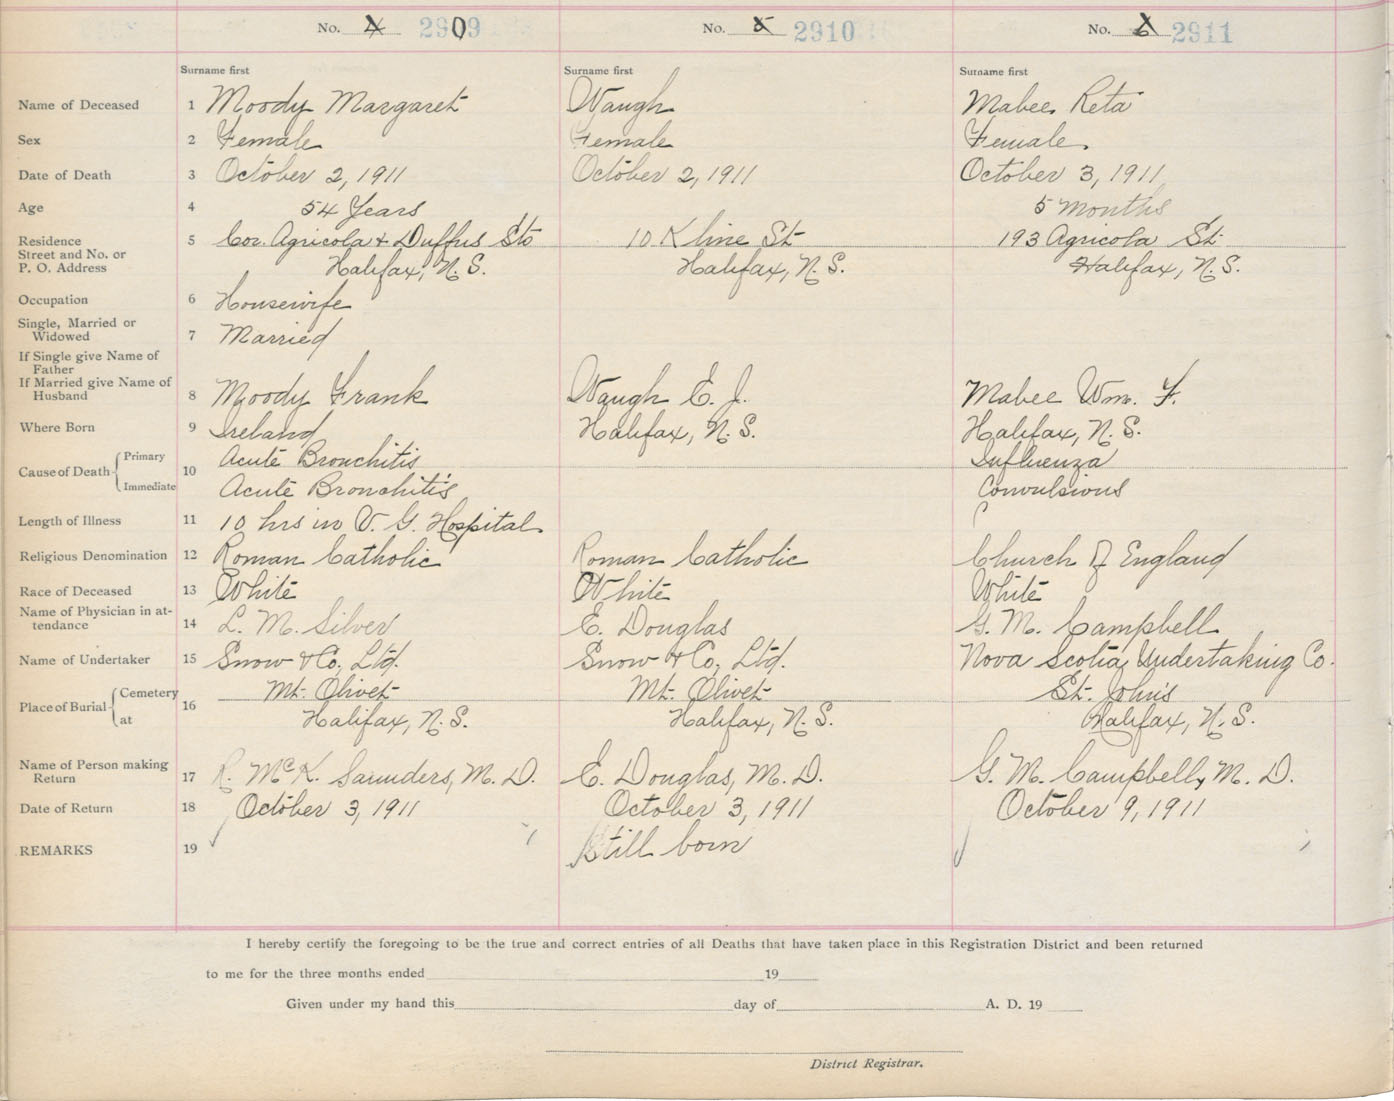 No. 4 2909
No. 5 2910
No. 6 2911
Surname first
Surname first
Surname first
Name of Deceased 1 Moody Margaret
Waugh
Mabee Reta
Sex 2 Female
Female
Female.
Date of Death 3 October 2, 1911
October 2, 1911
October 3, 1911
Age 4 54 Years
5 months
Residence
Street and No. or
P. O. Address
5 Cor. Agricola & Duffus Sts
Halifax, N. S.
10 Kline St
Halifax, N. S.
193 Agricola St.
Halifax, N. S.
Occupation 6 Housewife
Single, Married or
Widowed 7 Married
If Single give Name of
Father
If Married give Name of
Husband 8 Moody Frank
Waugh E. J.
Mabee Wm. F.
Where Born 9 Ireland
Halifax, N. S.
Halifax, N. S.
Cause of Death 10
Primary Acute Bronchitis
Influenza
Immediate Acute Bronchitis
Convulsions
Length of Illness 11 10 hrs in V. G. Hospital
Religious Denomination 12 Roman Catholic
Roman Catholic
Church of England
Race of Deceased 13 White
White
White
Name of Physician in at-
tendance 14 L. M. Silver
E. Douglas
G. M. Campbell
Name of Undertaker 15 Snow & Co. Ltd.
Snow & Co. Ltd.
Nova Scotia Undertaking Co.
Place of Burial 16
Cemetery Mt. Olivet
Mt. Olivet
St. John's
at Halifax, N. S.
Halifax, N. S.
Halifax, N. S.
Name of Person making
Return 17 R. McK. Saunders, M. D.
E. Douglas, M. D.
G. M. Campbell, M. D.
Date of Return 18 October 3, 1911
October 3, 1911
October 9, 1911
REMARKS 19
Still born
I hereby certify the foregoing to be the true and correct entries of all Deaths that have taken place in this Registration District and been returned
to me for the three months ended 19
Given under my hand this day of A. D. 19
District Registrar.